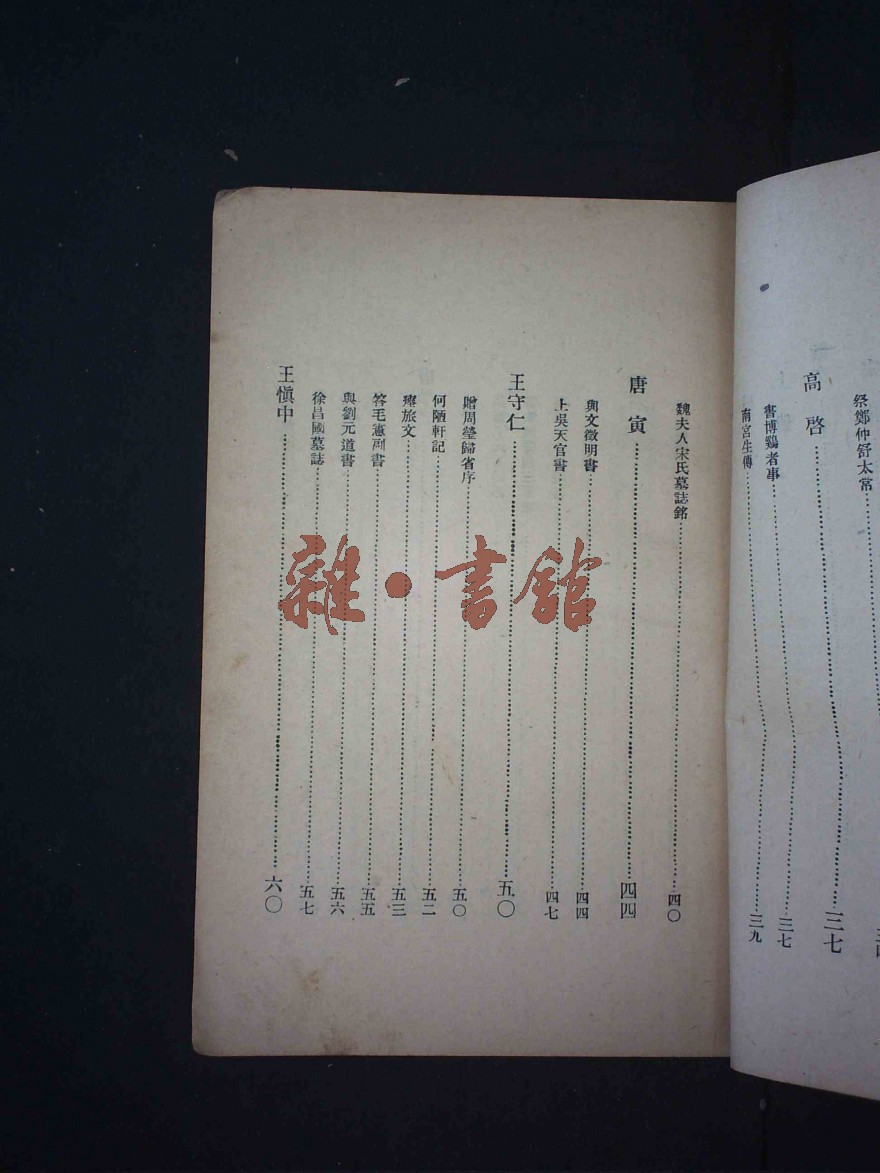 祭鄭仲舒太常
高啓……三七
書博鷄者事……三七
南宮生傳……三九
魏夫人宋氏墓誌銘……四〇
唐寅……四四
與文徵明書……四四
上吳天官書……四七
王守仁……五〇
贈周瑩歸省序……五〇
何陋軒記……五二
瘞旅文……五三
答毛憲副書……五五
與劉元道書……五六
徐昌國墓誌……五七
王愼中……六〇
雜·書館